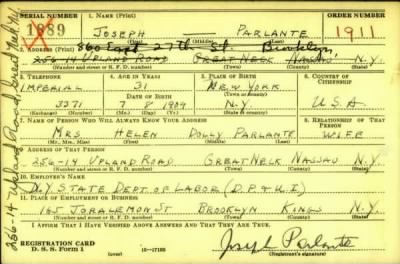 SERIAL NUMBER 1. NAME (Print) ORDER NUMBER
1889 JOSEPH PARLANTE 1911
(First) (Middle) (Last)
2. ADDRESS (Print) 860 East 27th St. Brooklyn
256-14 UPLAND ROAD GREAT NECK NASSAU N.Y.
(Number and street or R. F. D. number) (Town) (County) (State)
3. TELEPHONE 4. AGE IN YEARS 5. PLACE OF BIRTH 6. COUNTRY OF CITIZENSHIP
IMPERIAL 31 NEW YORK
(Town or county)
3371 7 8 1909 N.Y. U.S.A.
7. NAME OF PERSON WHO WILL ALWAYS KNOW YOUR ADDRESS 8. RELATIONSHIP OF THAT PERSON
MRS HELEN DOLLY PARLANTE WIFE
(Mr., Mrs., Miss) (First) (Middle) (Last)
9. ADDRESS OF THAT PERSON
256-14 UPLAND ROAD GREAT NECK NASSAU N.Y.
(Number and street or R. F. D. number) (Town) (County) (State)
10. EMPLOYER'S NAME
N.Y. STATE DEPT. OF LABOR (D.P.&U.I)
11. PLACE OF EMPLOYMENT OR BUSINESS
165 JORALEMON ST BROOKLYN KINGS N.Y.
(Number and street or R. F. D. number) (Town) (County) (State)
I AFFIRM THAT I HAVE VERIFIED ABOVE ANSWERS AND THAT THEY ARE TRUE.
REGISTRATION CARD
D. S. S. FORM 1 16-17105 Joseph Parlante
(Registrant's signature)
256-14 Upland Road Great Neck N.Y.